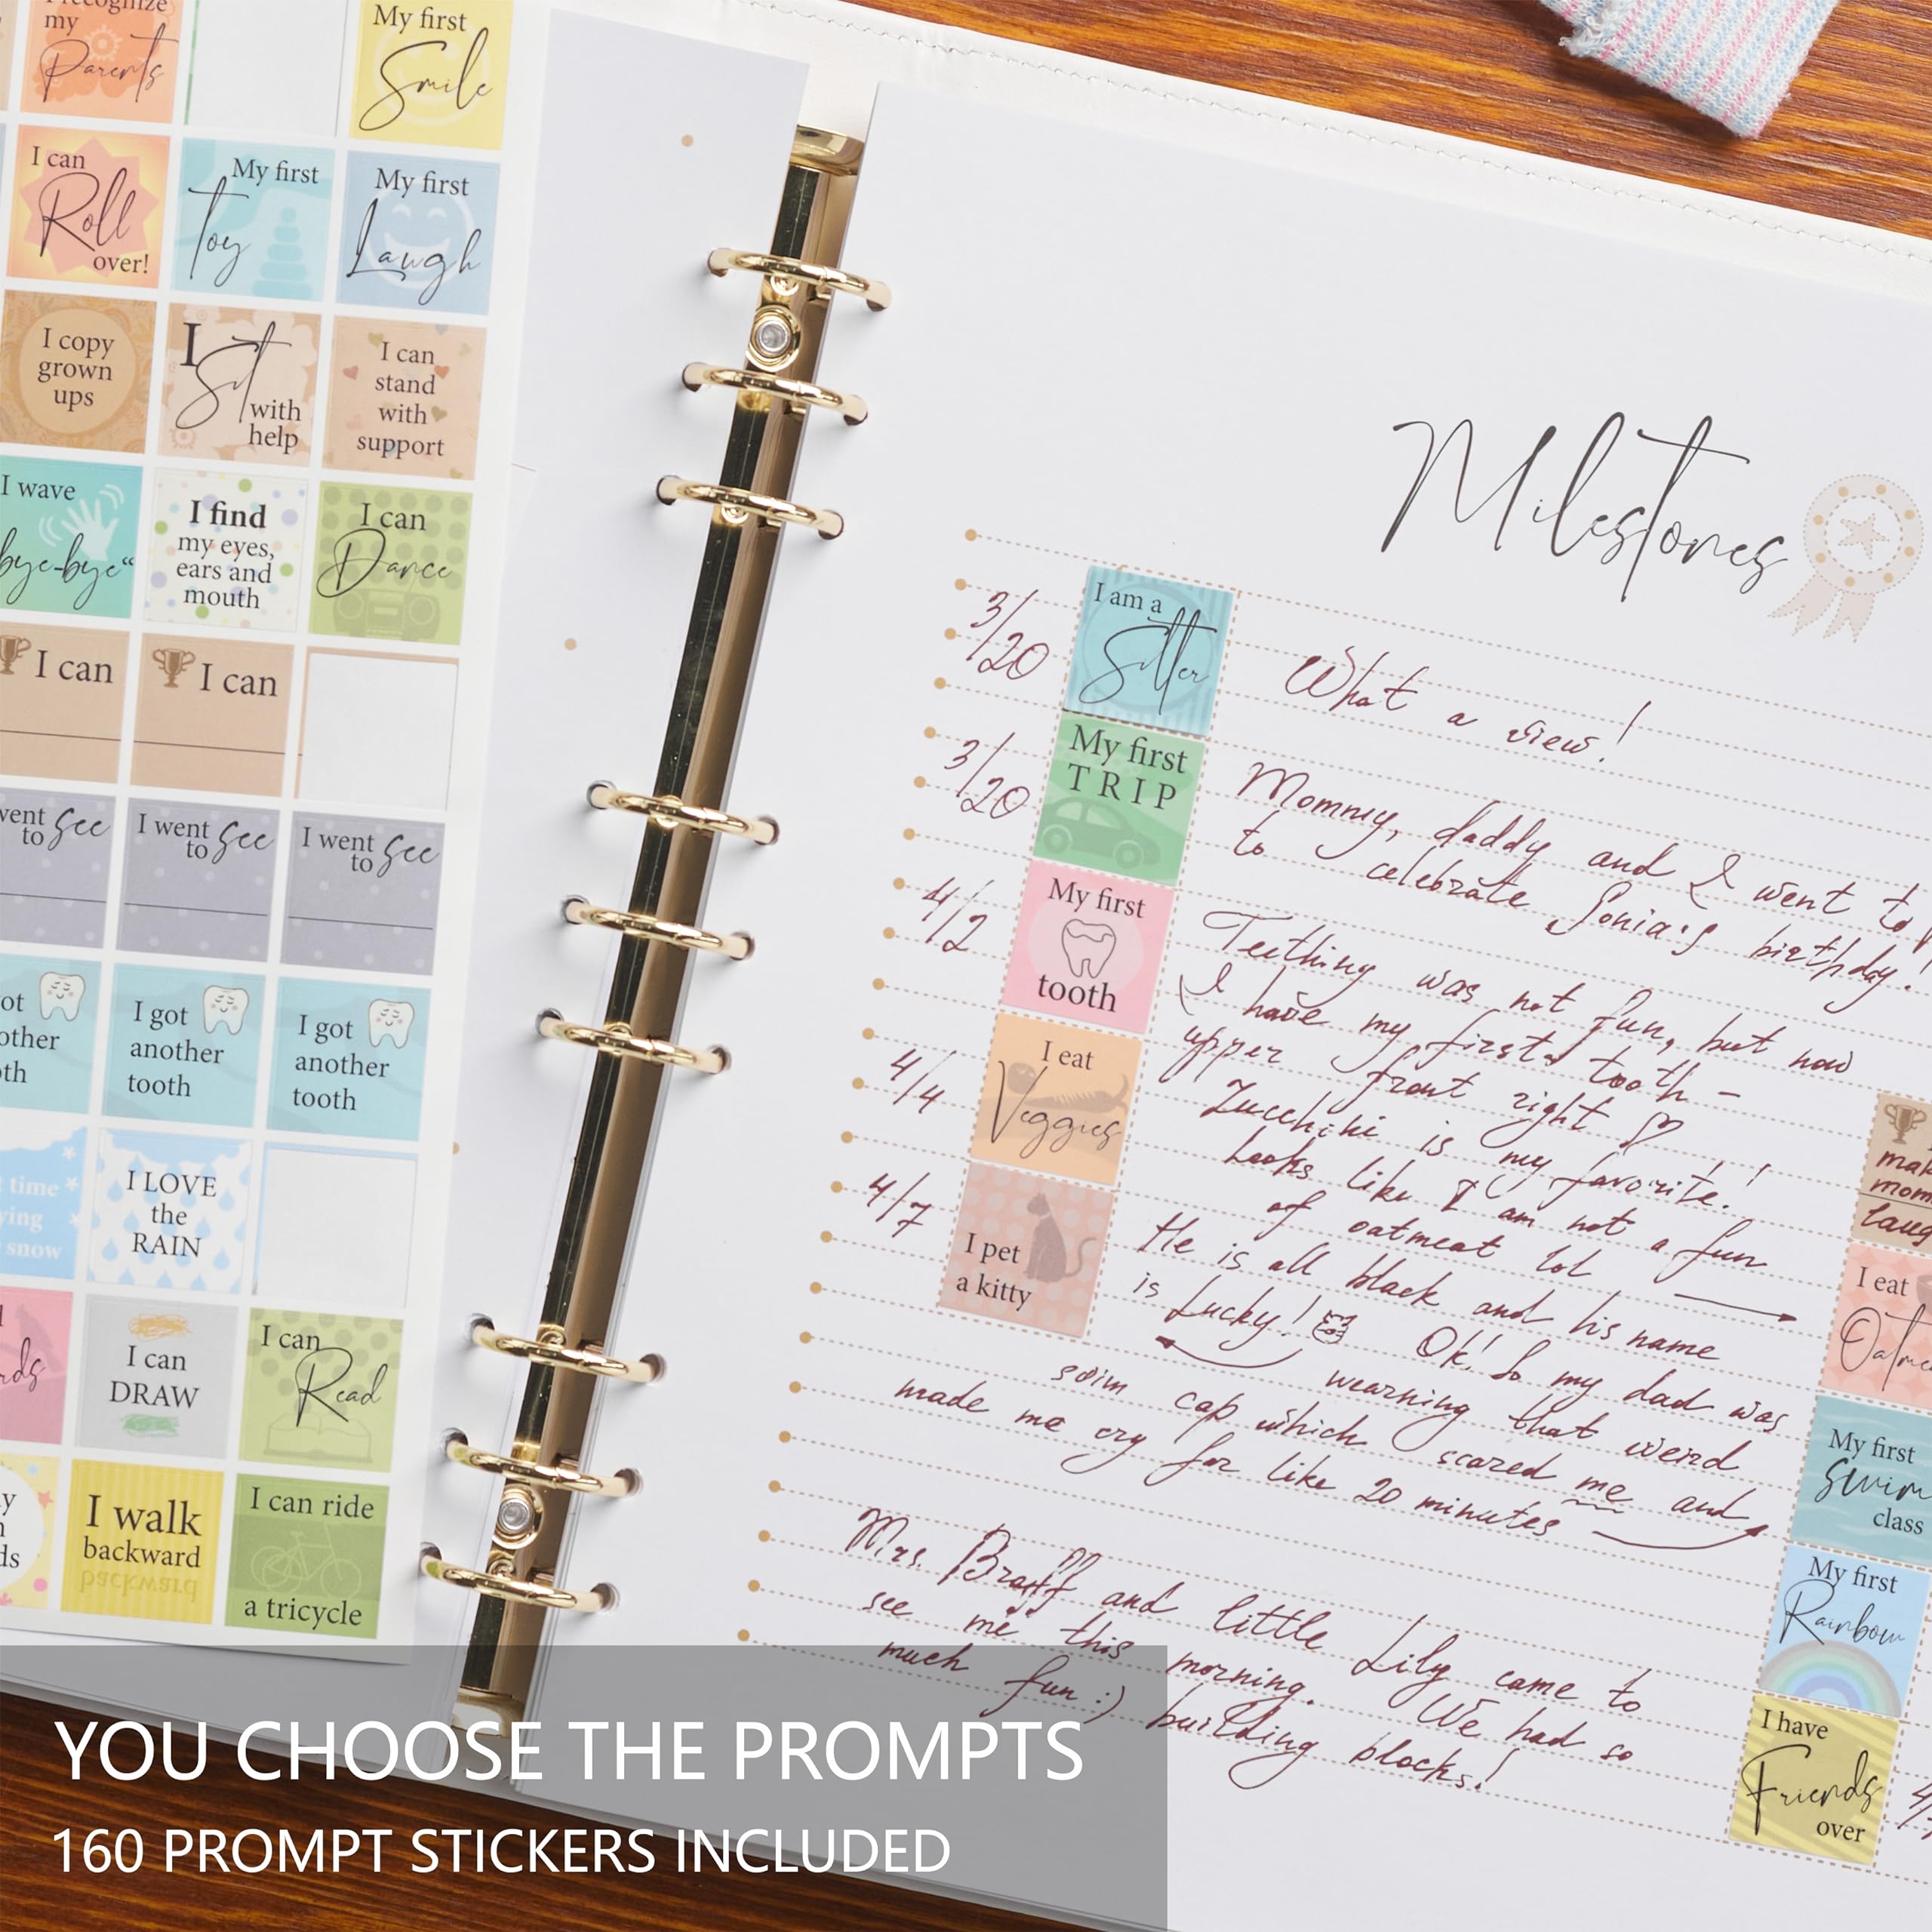 my
Parents
My first
Smile
I can
Roll
over!
My first
Toy
My first
Laugh
I copy
grown
ups
I
Sit
with
help
I can
stand
with
support
I wave
bye-bye"
I find
my eyes,
ears and
mouth
I can
Dance
I can
I can
to See
I went
to See
I went
to See
I got
another
tooth
I got
another
tooth
time
snow
I LOVE
the
RAIN
I can
DRAW
I can
Read
I walk
backward
backward
I can ride
a tricycle
Milestones
3/20
I am a
Sitter
What a view!
3/20
My first
TRIP
Mommy, daddy and I went to
to celebrate Sonia's birthday!
4/2
My first
tooth
Teething was not fun, but now
I have my first tooth -
upper front right
4/4
I eat
Veggies
Zucchini is my favorite!
Looks like I am not a fun
of oatmeat lol
4/7
I pet
a kitty
He is all black and his name
is Lucky! Ok! So my dad was
wearning that weird
swim cap which scared me and
made me cry for like 20 minutes
Mrs. Braff and little Lily came to
see me this morning. We had so
much fun :) building blocks!
I eat
My first
Swim
class
My first
Rainbow
I have
Friends
over
YOU CHOOSE THE PROMPTS
160 PROMPT STICKERS INCLUDED